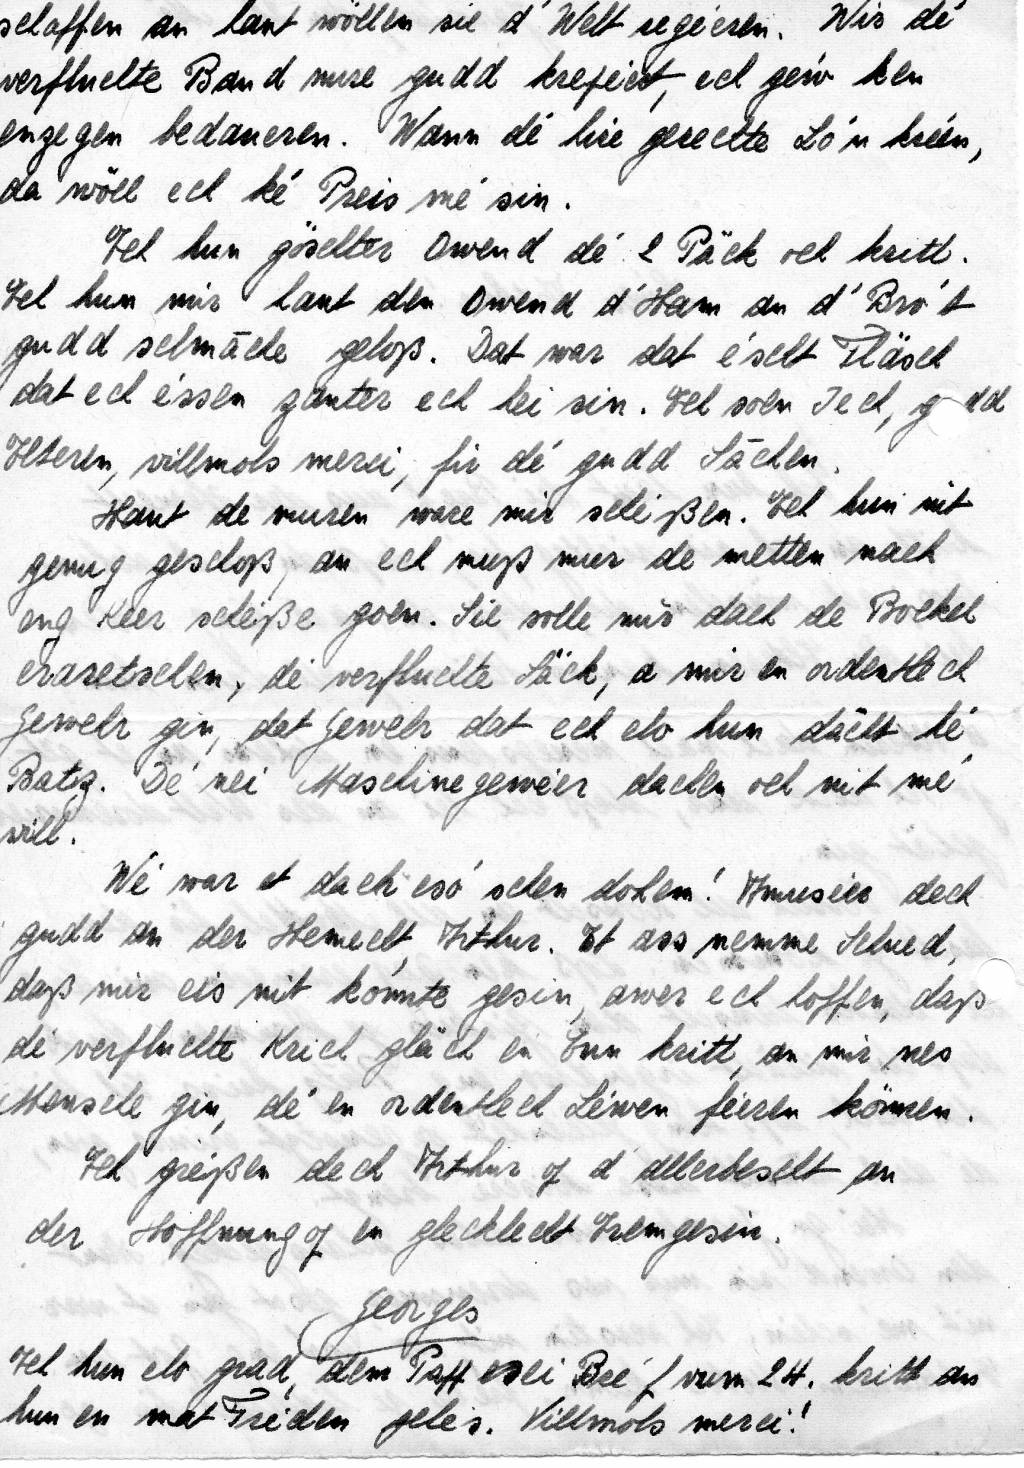 schaffen an haut wöllen sie d'Welt regéeren. Wir dé
verfluchte Band nure gudd krepéert, ech géiv ken
enzegen bedaueren. Wann dé hire gerechte Lo'n kréen,
da wöll ech ké Preis mé sin.
Ech hun göschter Owend dé 2 Päck och kritt.
Ech hun mir haut den Owend d'Ham an d'Bro't
gudd schmāche geloß. Dat war dat éischt Fläsch
dat ech éssen zanter ech hei sin. Ech soen Iech, gudd
Elteren, villmols merci, fir dé gudd Sāchen.
Haut de muren ware mir schéißen. Ech hun nit
genug geschoß, an ech muß mur de metten nach
eng Keer schéiße goen. Sie solle mir dach de Bockel
eraretschen, dé verfluchte Säck, a mir en ordentlech
Gewehr gin, dat Gewehr dat ech elo hun dācht ké
Batz. Dé nei Maschinegewéer dachen och nit mé
vill.
Wé war et dach esó schen dohem! Amuséer dech
gudd an der Hemecht, Arthur. Et ass nemme Schued,
daß mir eis nit konnte gesin, awer ech hoffen, daß
dé verfluchte Krich gläch en Enn kritt, an mir nes
Mensche gin, dé en ordentlech Léwen féeren können.
Ech gréißen dech Arthur of d'allerbescht an
der Hoffnung of en glecklecht Eremgesin.
Georges
Ech hun elo grad, dem Papp eisei Bréf vum 24. kritt an
hun en mat Fréden geles. Villmols merci!